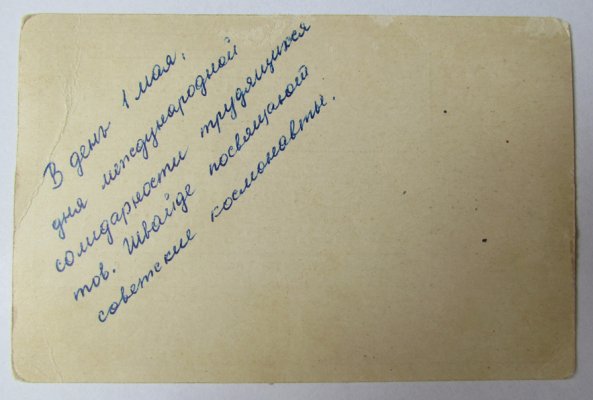 В день 1 мая,
дня международной
солидарности трудящихся
тов. Швайде посвящают
советские космонавты.